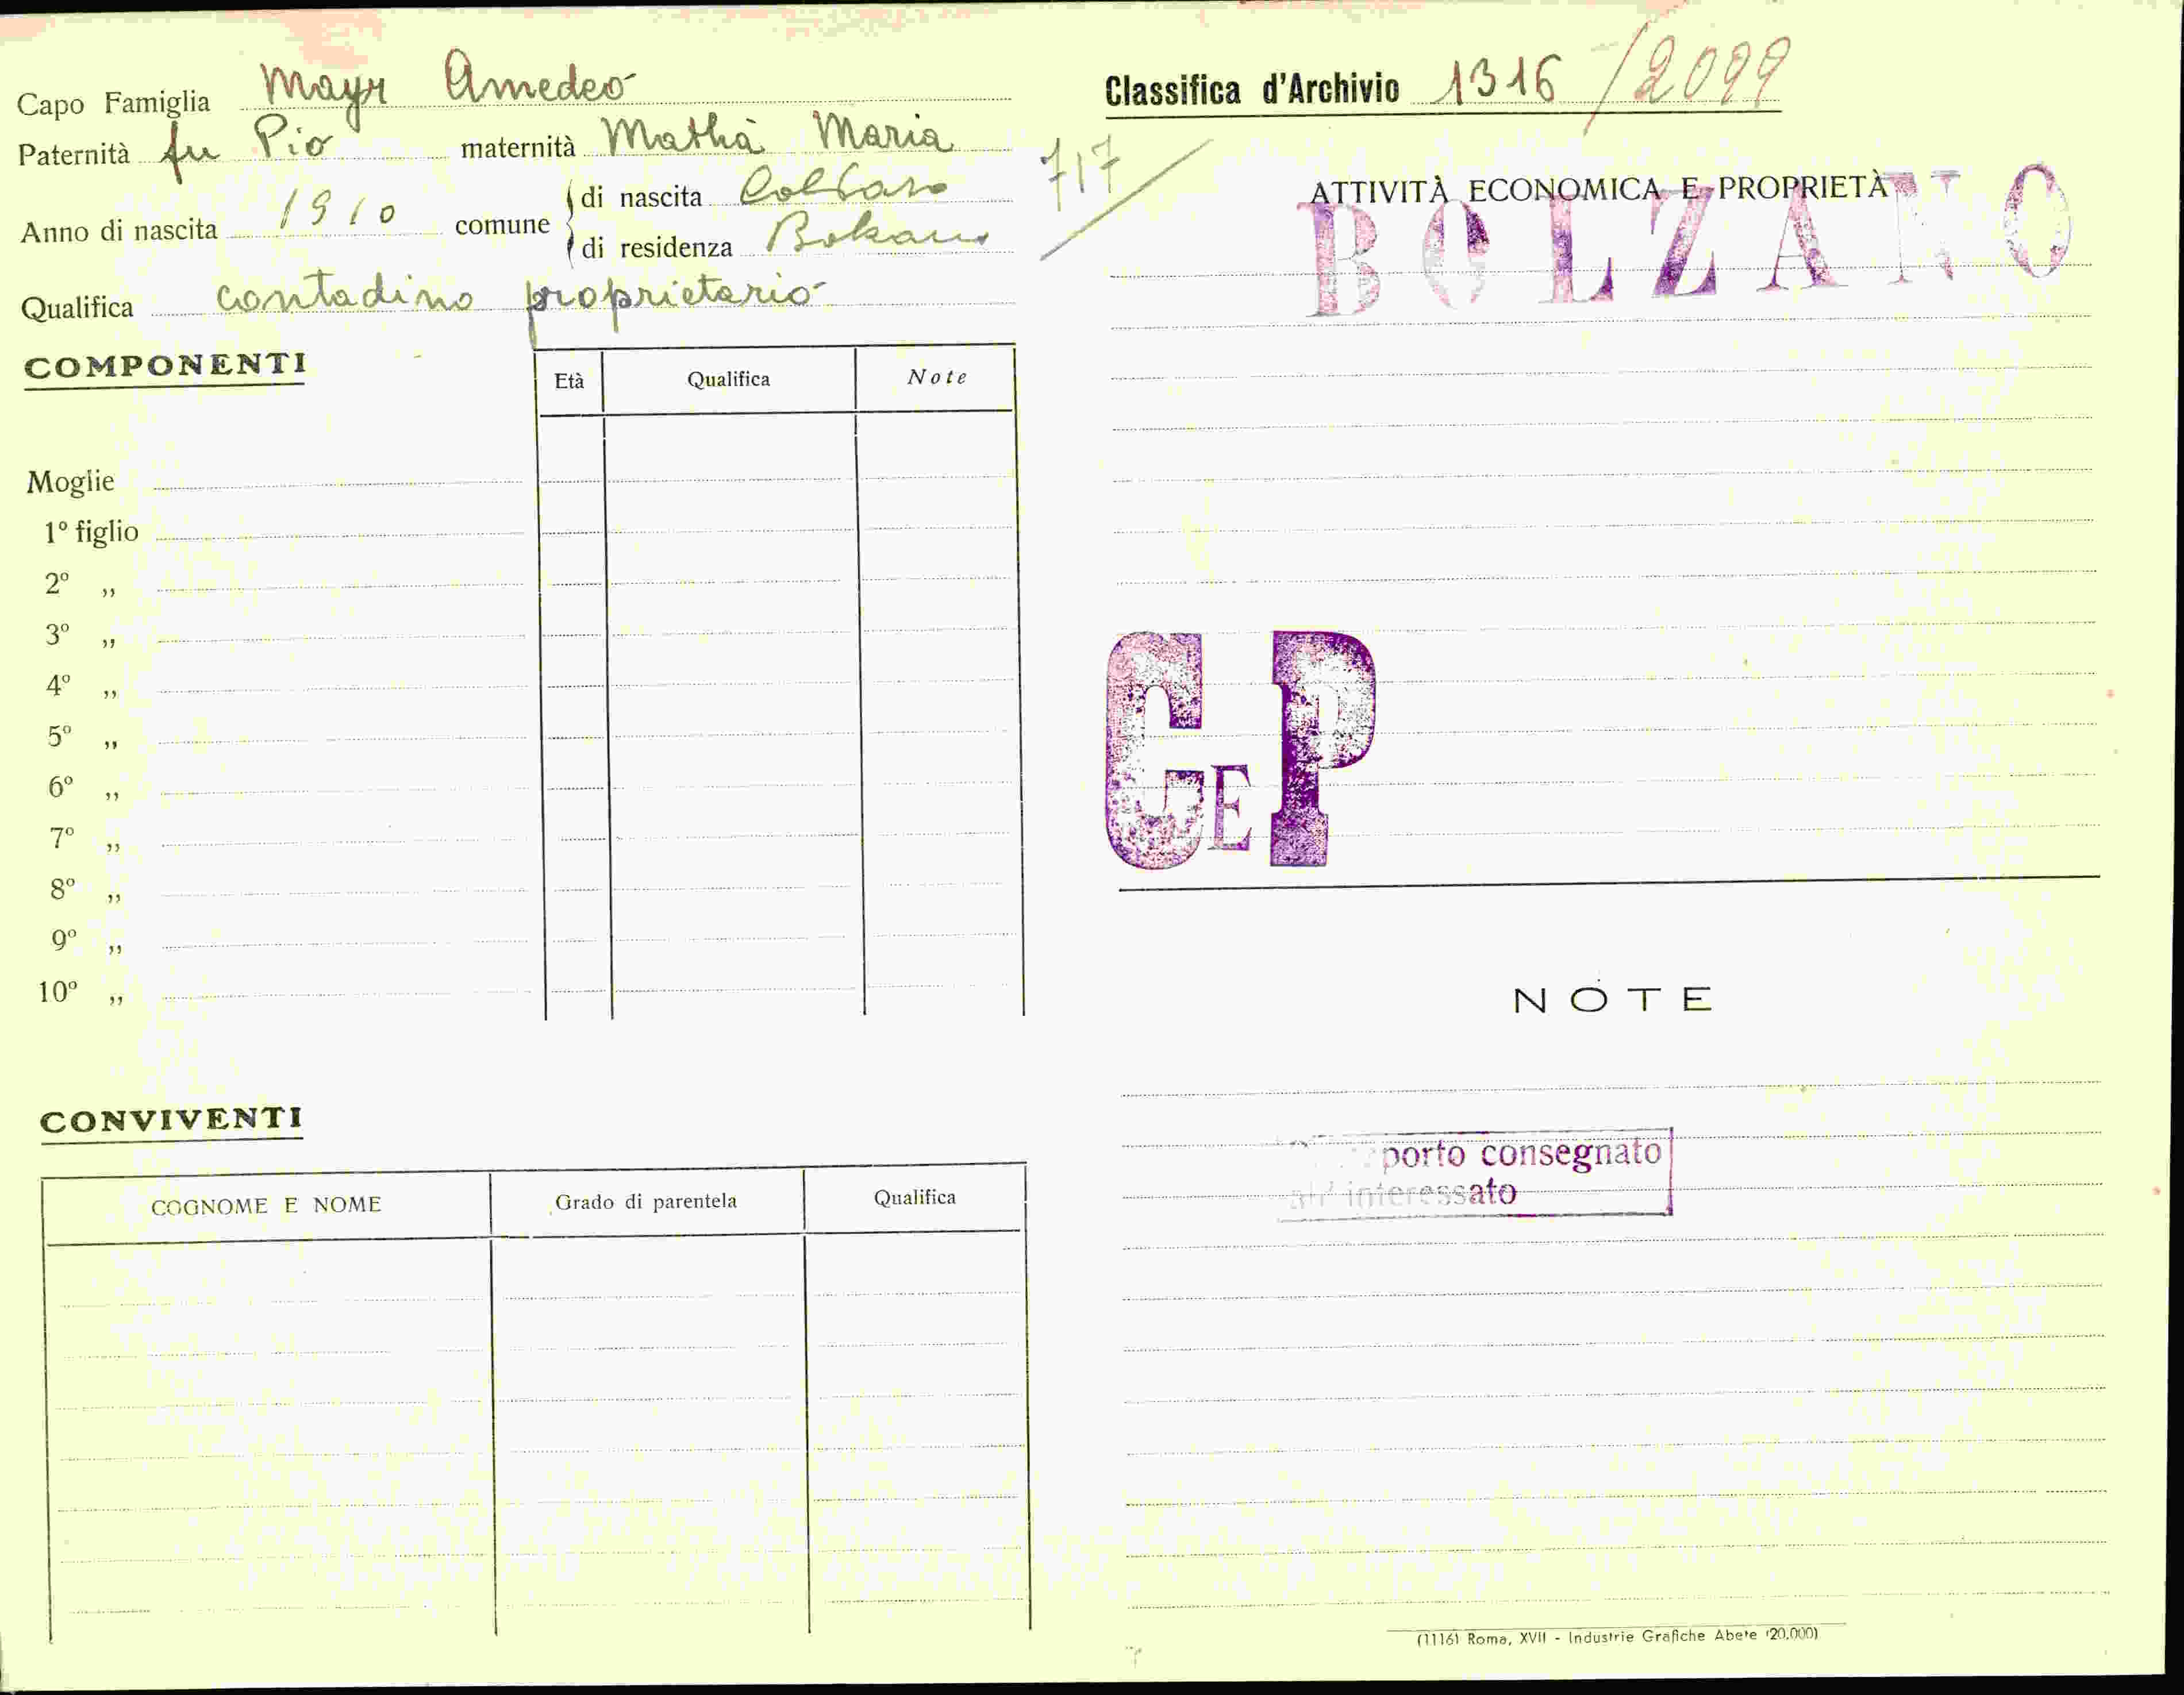 Capo Famiglia Mayr Amedeo
Paternità fu Pio maternità Mathà Maria
Anno di nascita 1910 comune di nascita
di residenza Bolzano
Qualifica contadino proprietario
COMPONENTI
Età Qualifica Note
Moglie
1º figlio
2º „
3º „
4º „
5º „
6º „
7º „
8º „
9º „
10º „
CONVIVENTI
COGNOME E NOME Grado di parentela Qualifica
Classifica d'Archivio 1316/2099
717
ATTIVITÀ ECONOMICA E PROPRIETÀ
BOLZANO
C E P
NOTE
porto consegnato
all'interessato
(1116) Roma, XVII - Industrie Grafiche Abete (20.000)